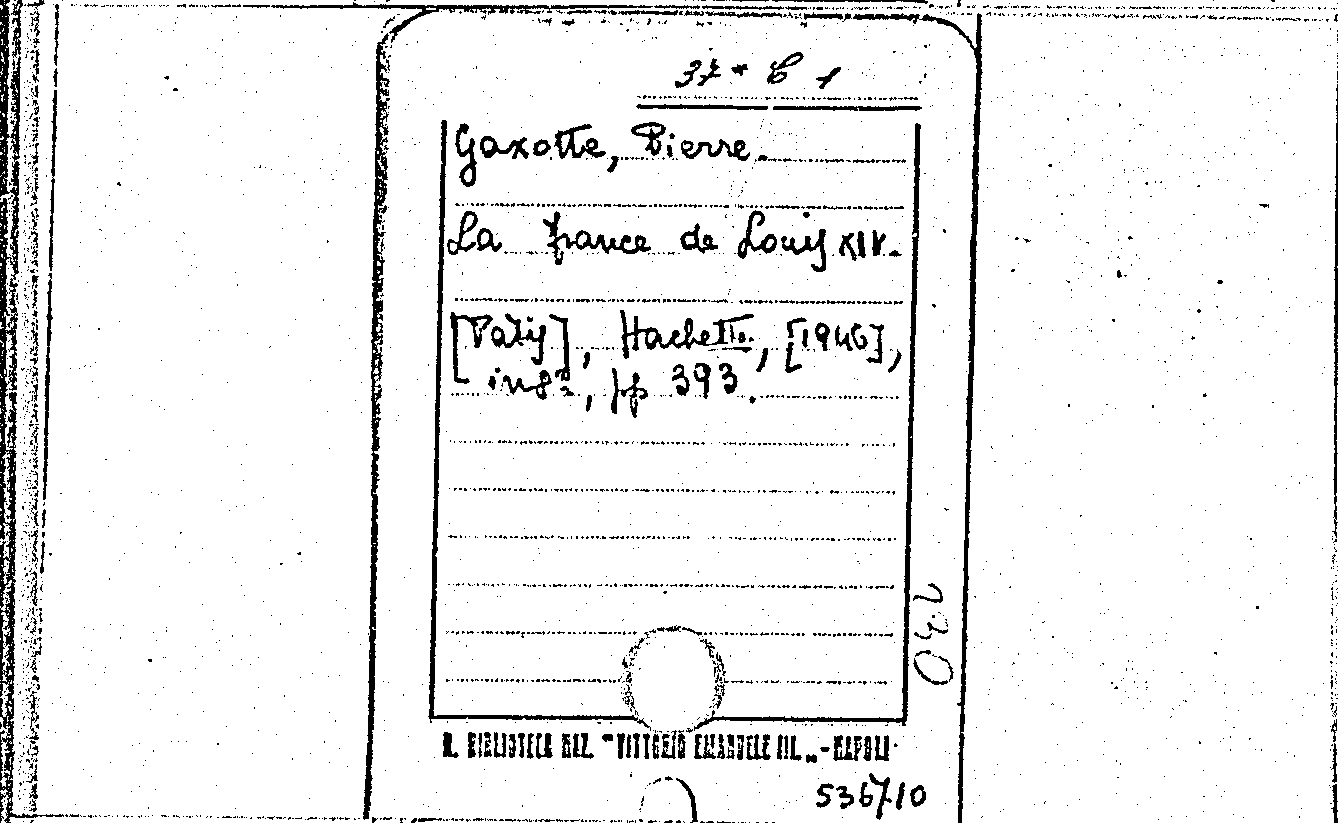 37 * C 1
Gaxotte, Pierre.
La france de Louis XIV.
[Paris], Hachette, [1946],
in 8º, pp 393.
230
R. BIBLIOTECA NAZ. "VITTORIO EMANUELE III.„ - NAPOLI
536710